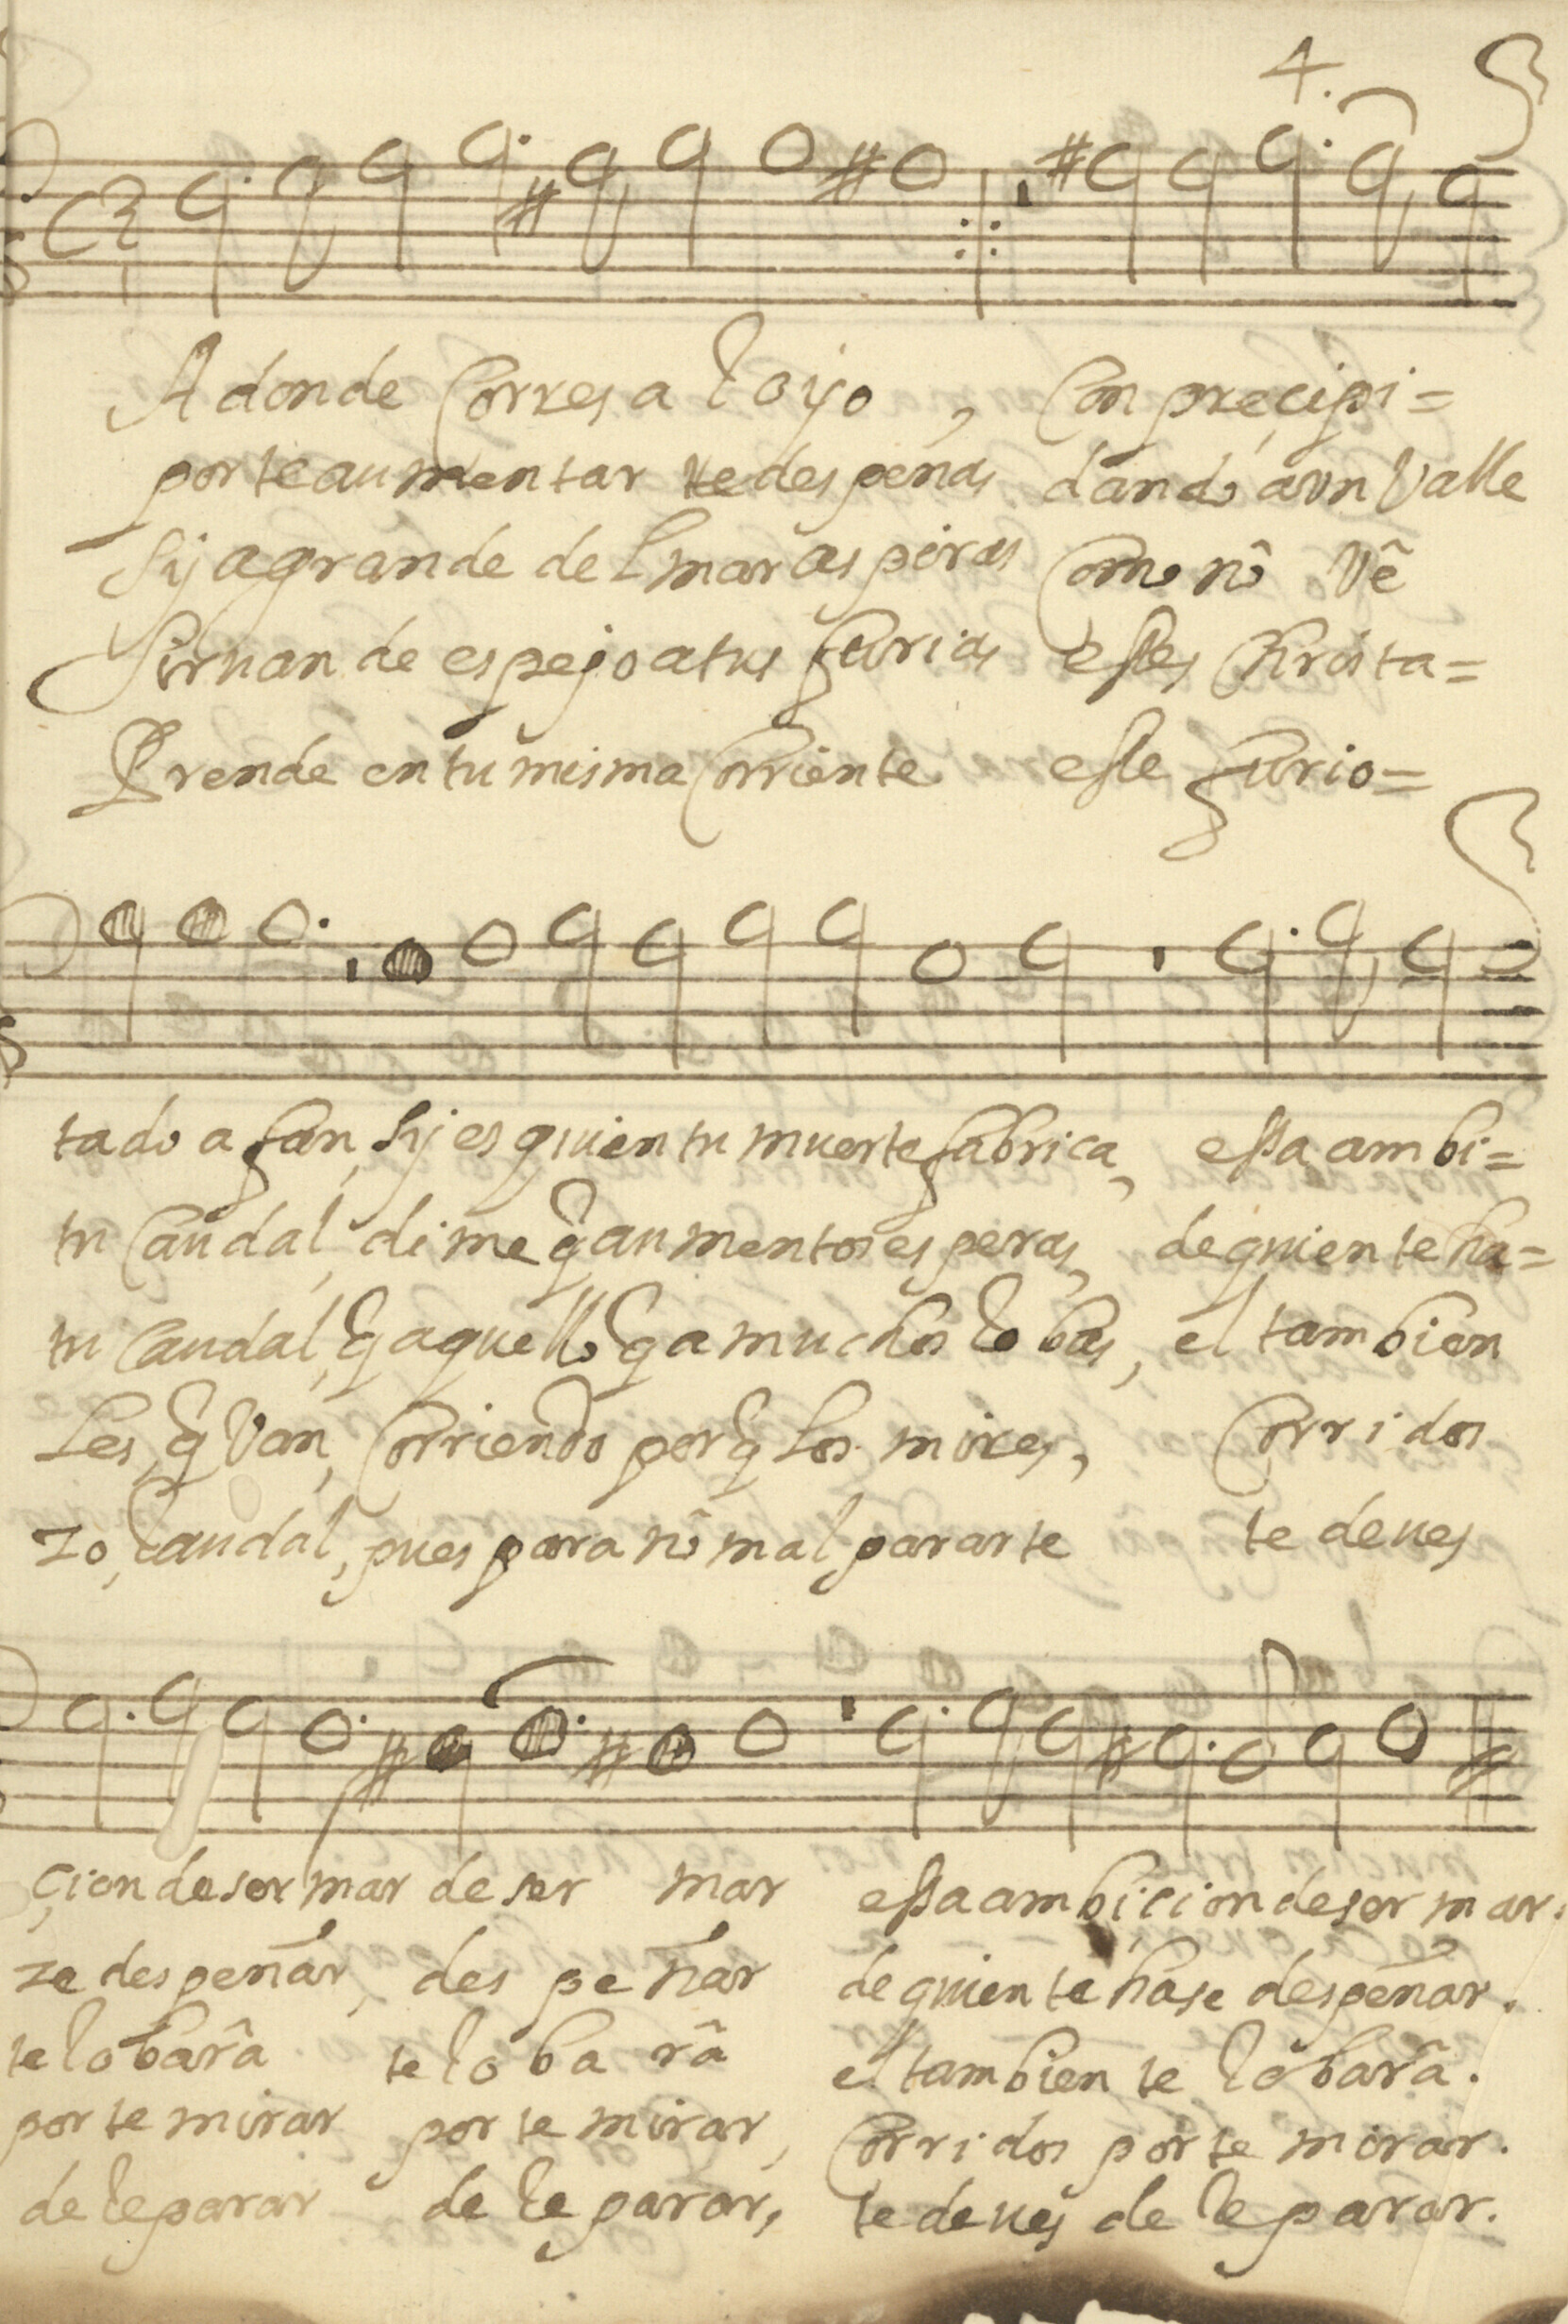 4.
A donde Corres aRoyo, Con preçipi=
por te aumentar te despeñas dando a vn Valle
Sy a grande del mar aspiras Como nô Vê
Siruan de espejo a tus furias estes Christa=
Prende en tu misma Corriente este furio=
tado afan, Sy es quien tu muerte fabrica, essa ambi=
tu Caudal, dime q̃ aumentos esperas, de quien te ha=
tu Caudal, q̃ aquello q̃ a muchos Robas, el tambien
Les, q̃ Van, Corriendo por q̃ Los mires, Corridos
zo, Raudal, pues para nô mal pararte te deues
çion de ser mar de ser mar essa ambicion de ser mar.
ze despeñar, des pe ñar de quien te hase despeñar.
te Robarâ te Ro ba râ el tambien te Robarâ.
por te mirar por te mirar, Corridos por te mirar.
de Reparar de Re parar, te deues de Reparar.